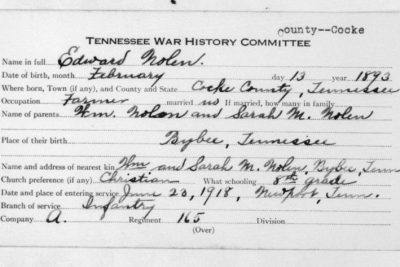 County--Cocke
TENNESSEE WAR HISTORY COMMITTEE
Name in full Edward Nolen.
Date of birth, month February day 13 year 1893
Where born, Town (if any), and County and State Cocke County, Tennessee
Occupation Farmer married no If married, how many in family
Name of parents Wm. Nolan and Sarah M. Nolen
Place of their birth Bybee, Tennessee
Name and address of nearest kin Wm and Sarah M. Nolen, Bybee, Tenn
Church preference (if any) Christian What schooling 8th grade
Date and place of entering service June 20, 1918, Newport, Tenn.
Branch of service Infantry
Company A. Regiment 165 Division
(Over)